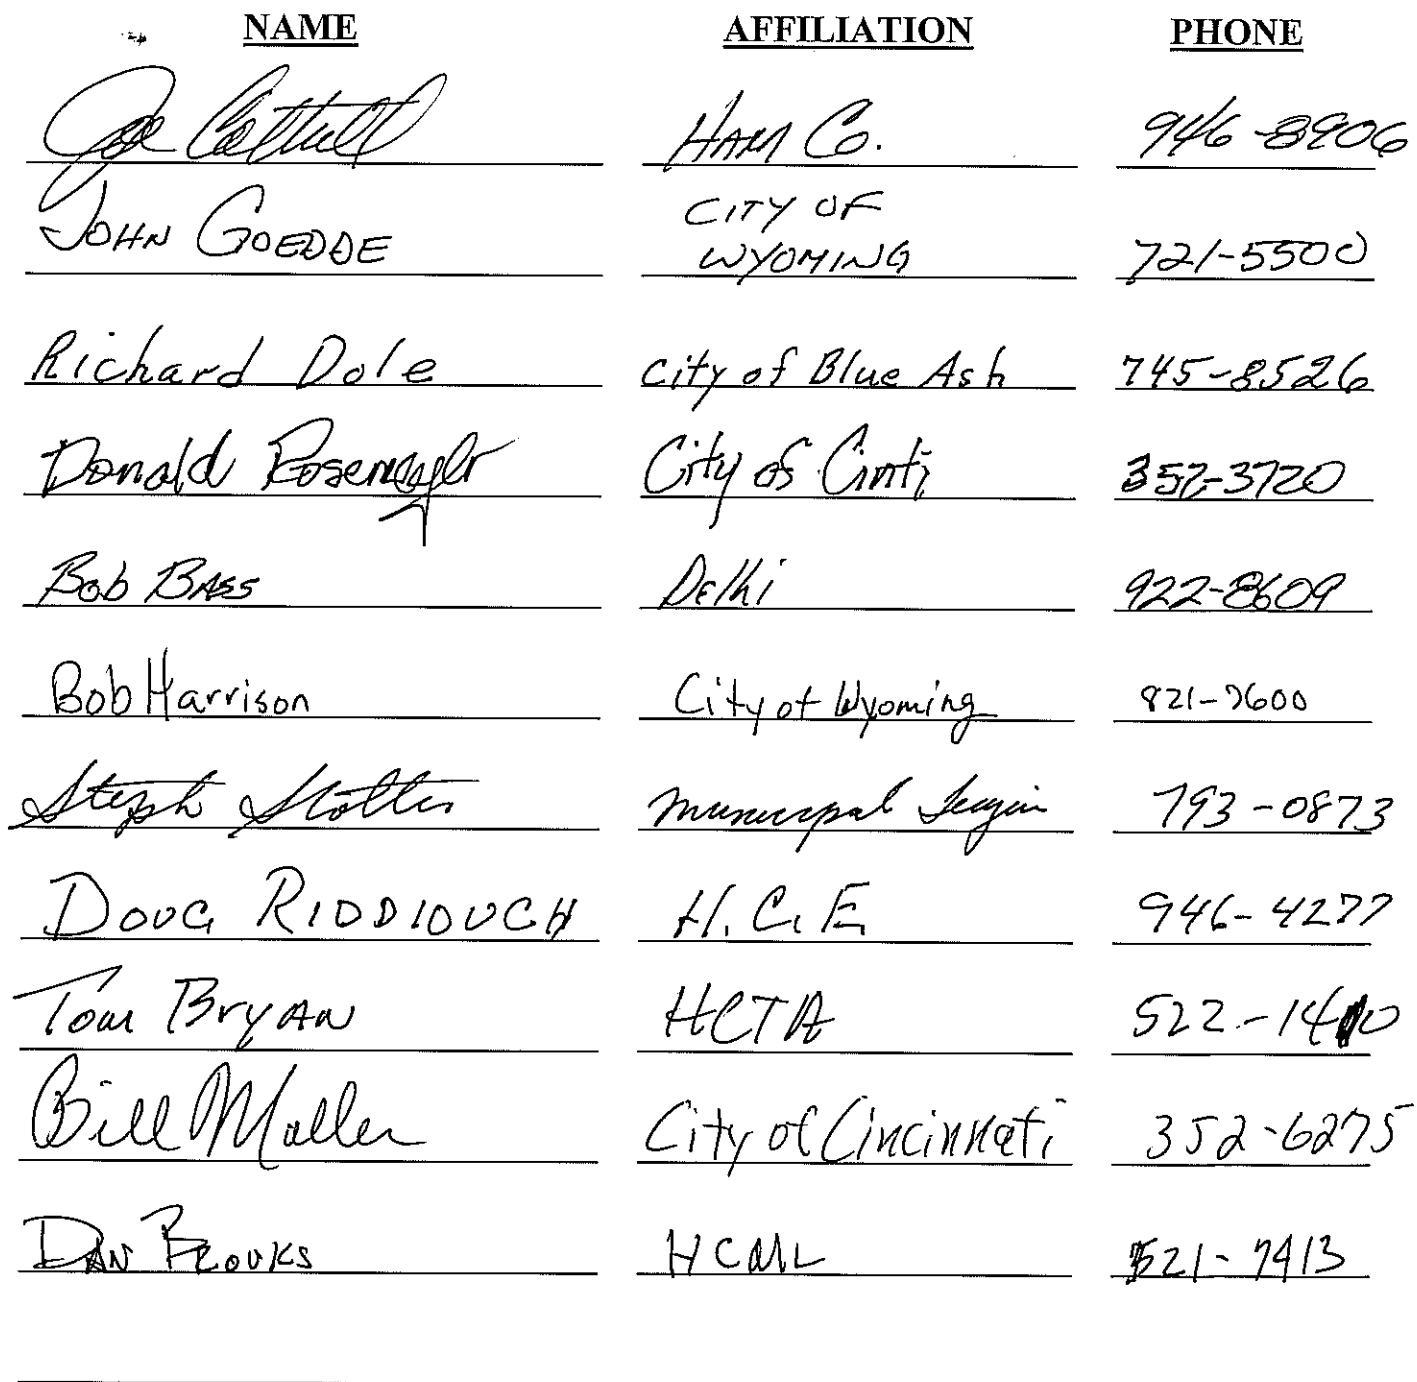 NAME AFFILIATION PHONE
Joe Cottrill HAM Co. 946-8906
JOHN GOEDDE CITY OF WYOMING 721-5500
Richard Dole city of Blue Ash 745-8526
Donald Rosemeyer City of Cinti 352-3720
Bob BASS Delhi 922-8609
Bob Harrison City of Wyoming 821-7600
Steph Municipal 793-0873
DOUG RIDDIOUGH H.C.E 946-4277
Tom BRYAN HCTA 522-1410
Bill Moller City of Cincinnati 352-6275
DAN BROOKS HCML 521-7413